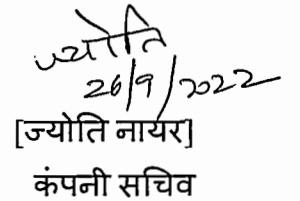 ज्योति
26/9/2022
[ज्योति नायर]
कंपनी सचिव